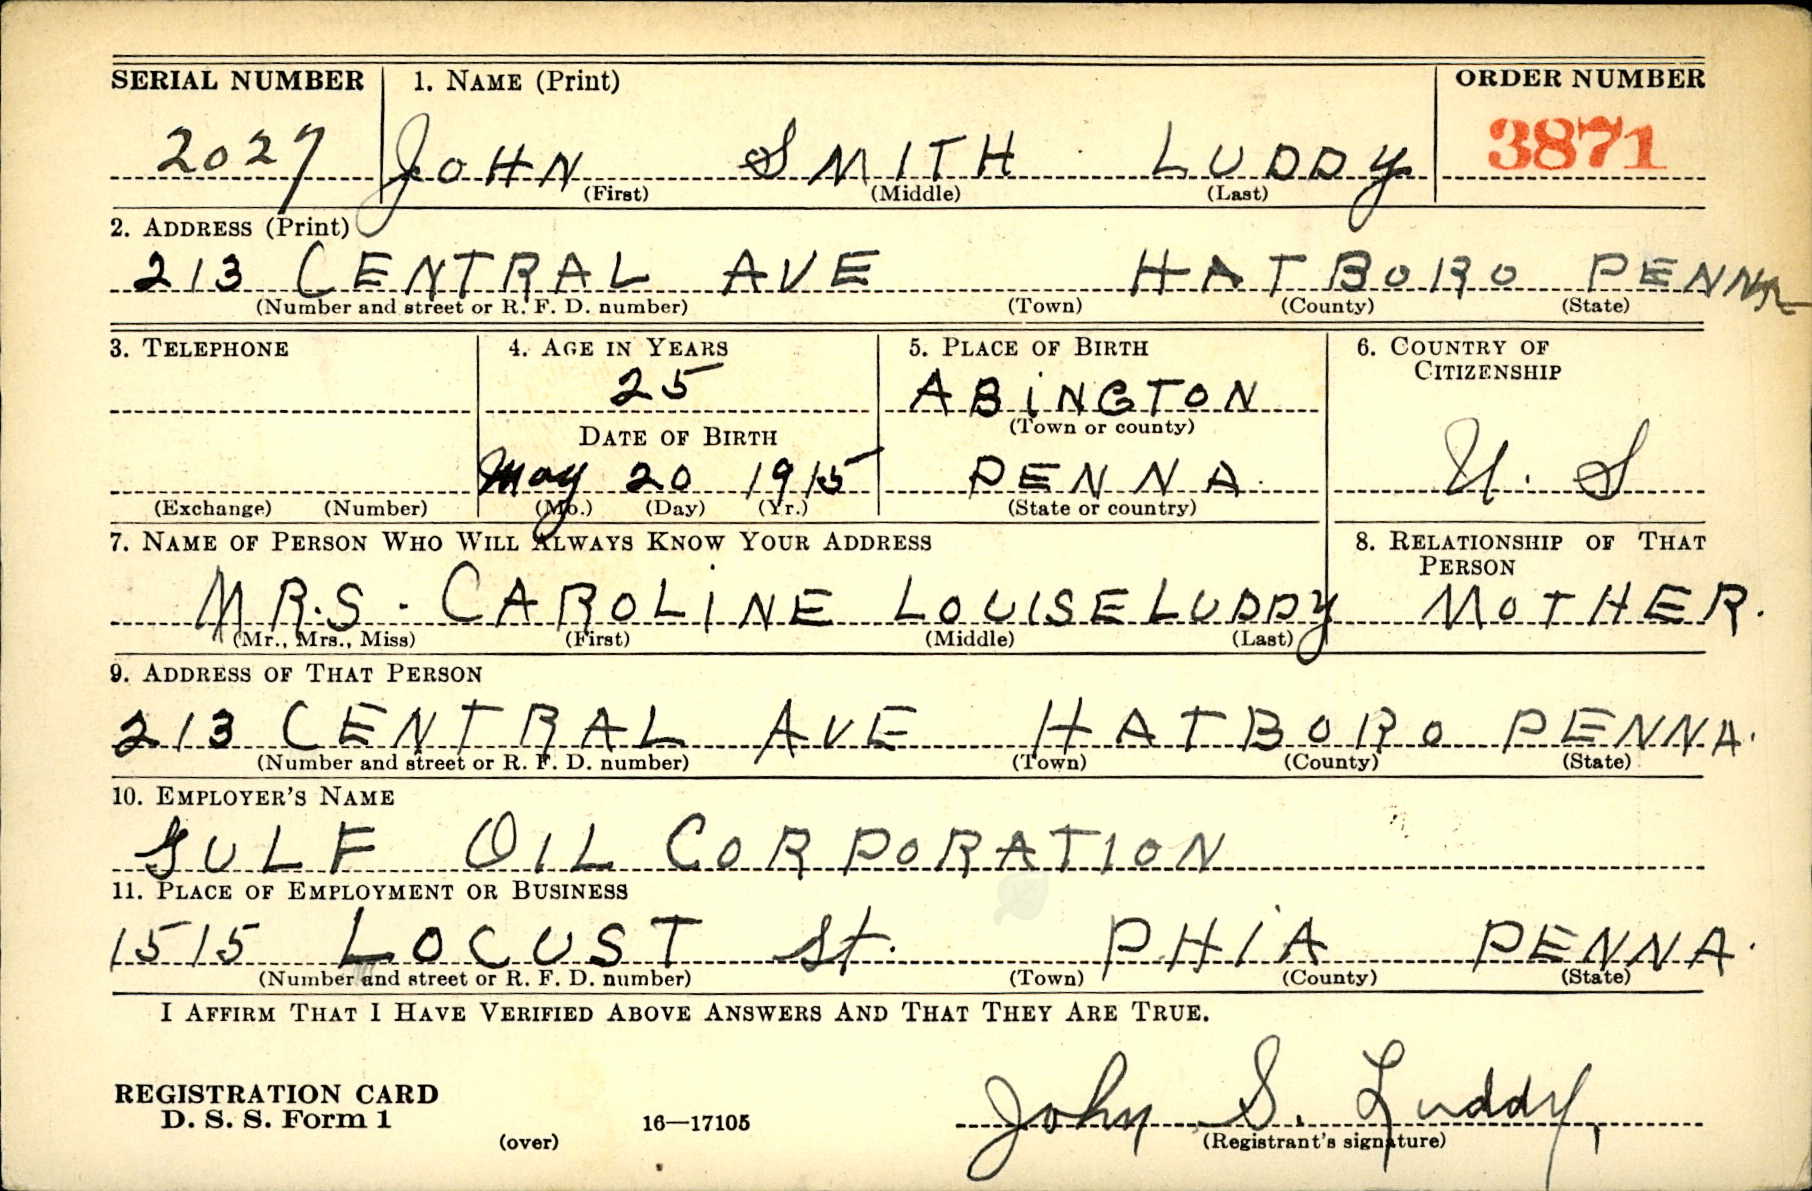 SERIAL NUMBER 1. NAME (Print) ORDER NUMBER
2027 JOHN SMITH LUDDY 3871
(First) (Middle) (Last)
2. ADDRESS (Print)
213 CENTRAL AVE HATBORO PENNA
(Number and street or R. F. D. number) (Town) (County) (State)
3. TELEPHONE 4. AGE IN YEARS 5. PLACE OF BIRTH 6. COUNTRY OF
CITIZENSHIP
25 ABINGTON
(Town or county)
DATE OF BIRTH
May 20 1915 PENNA. U. S
(Exchange) (Number) (Mo.) (Day) (Yr.) (State or country)
7. NAME OF PERSON WHO WILL ALWAYS KNOW YOUR ADDRESS 8. RELATIONSHIP OF THAT
PERSON
MRS. CAROLINE LOUISE LUDDY MOTHER.
(Mr., Mrs., Miss) (First) (Middle) (Last)
9. ADDRESS OF THAT PERSON
213 CENTRAL AVE HATBORO PENNA.
(Number and street or R. F. D. number) (Town) (County) (State)
10. EMPLOYER'S NAME
GULF OIL CORPORATION
11. PLACE OF EMPLOYMENT OR BUSINESS
1515 LOCUST St. PHIA PENNA.
(Number and street or R. F. D. number) (Town) (County) (State)
I AFFIRM THAT I HAVE VERIFIED ABOVE ANSWERS AND THAT THEY ARE TRUE.
REGISTRATION CARD
D. S. S. Form 1 16—17105 John S. Luddy,
(over) (Registrant's signature)